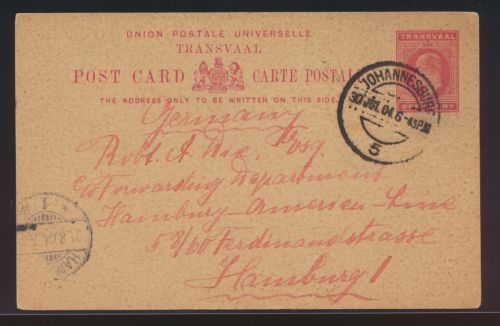 UNION POSTALE UNIVERSELLE
TRANSVAAL
POST CARD CARTE POSTALE
THE ADDRESS ONLY TO BE WRITTEN ON THIS SIDE.
TRANSVAAL
ONE PENNY
JOHANNESBURG
30 JUL 04 6-45PM
5
Germany
Robt. A. Dix. Esq
c/o Forwarding Department
Hamburg-American-Line
58/60 Ferdinandstrasse
Hamburg 1